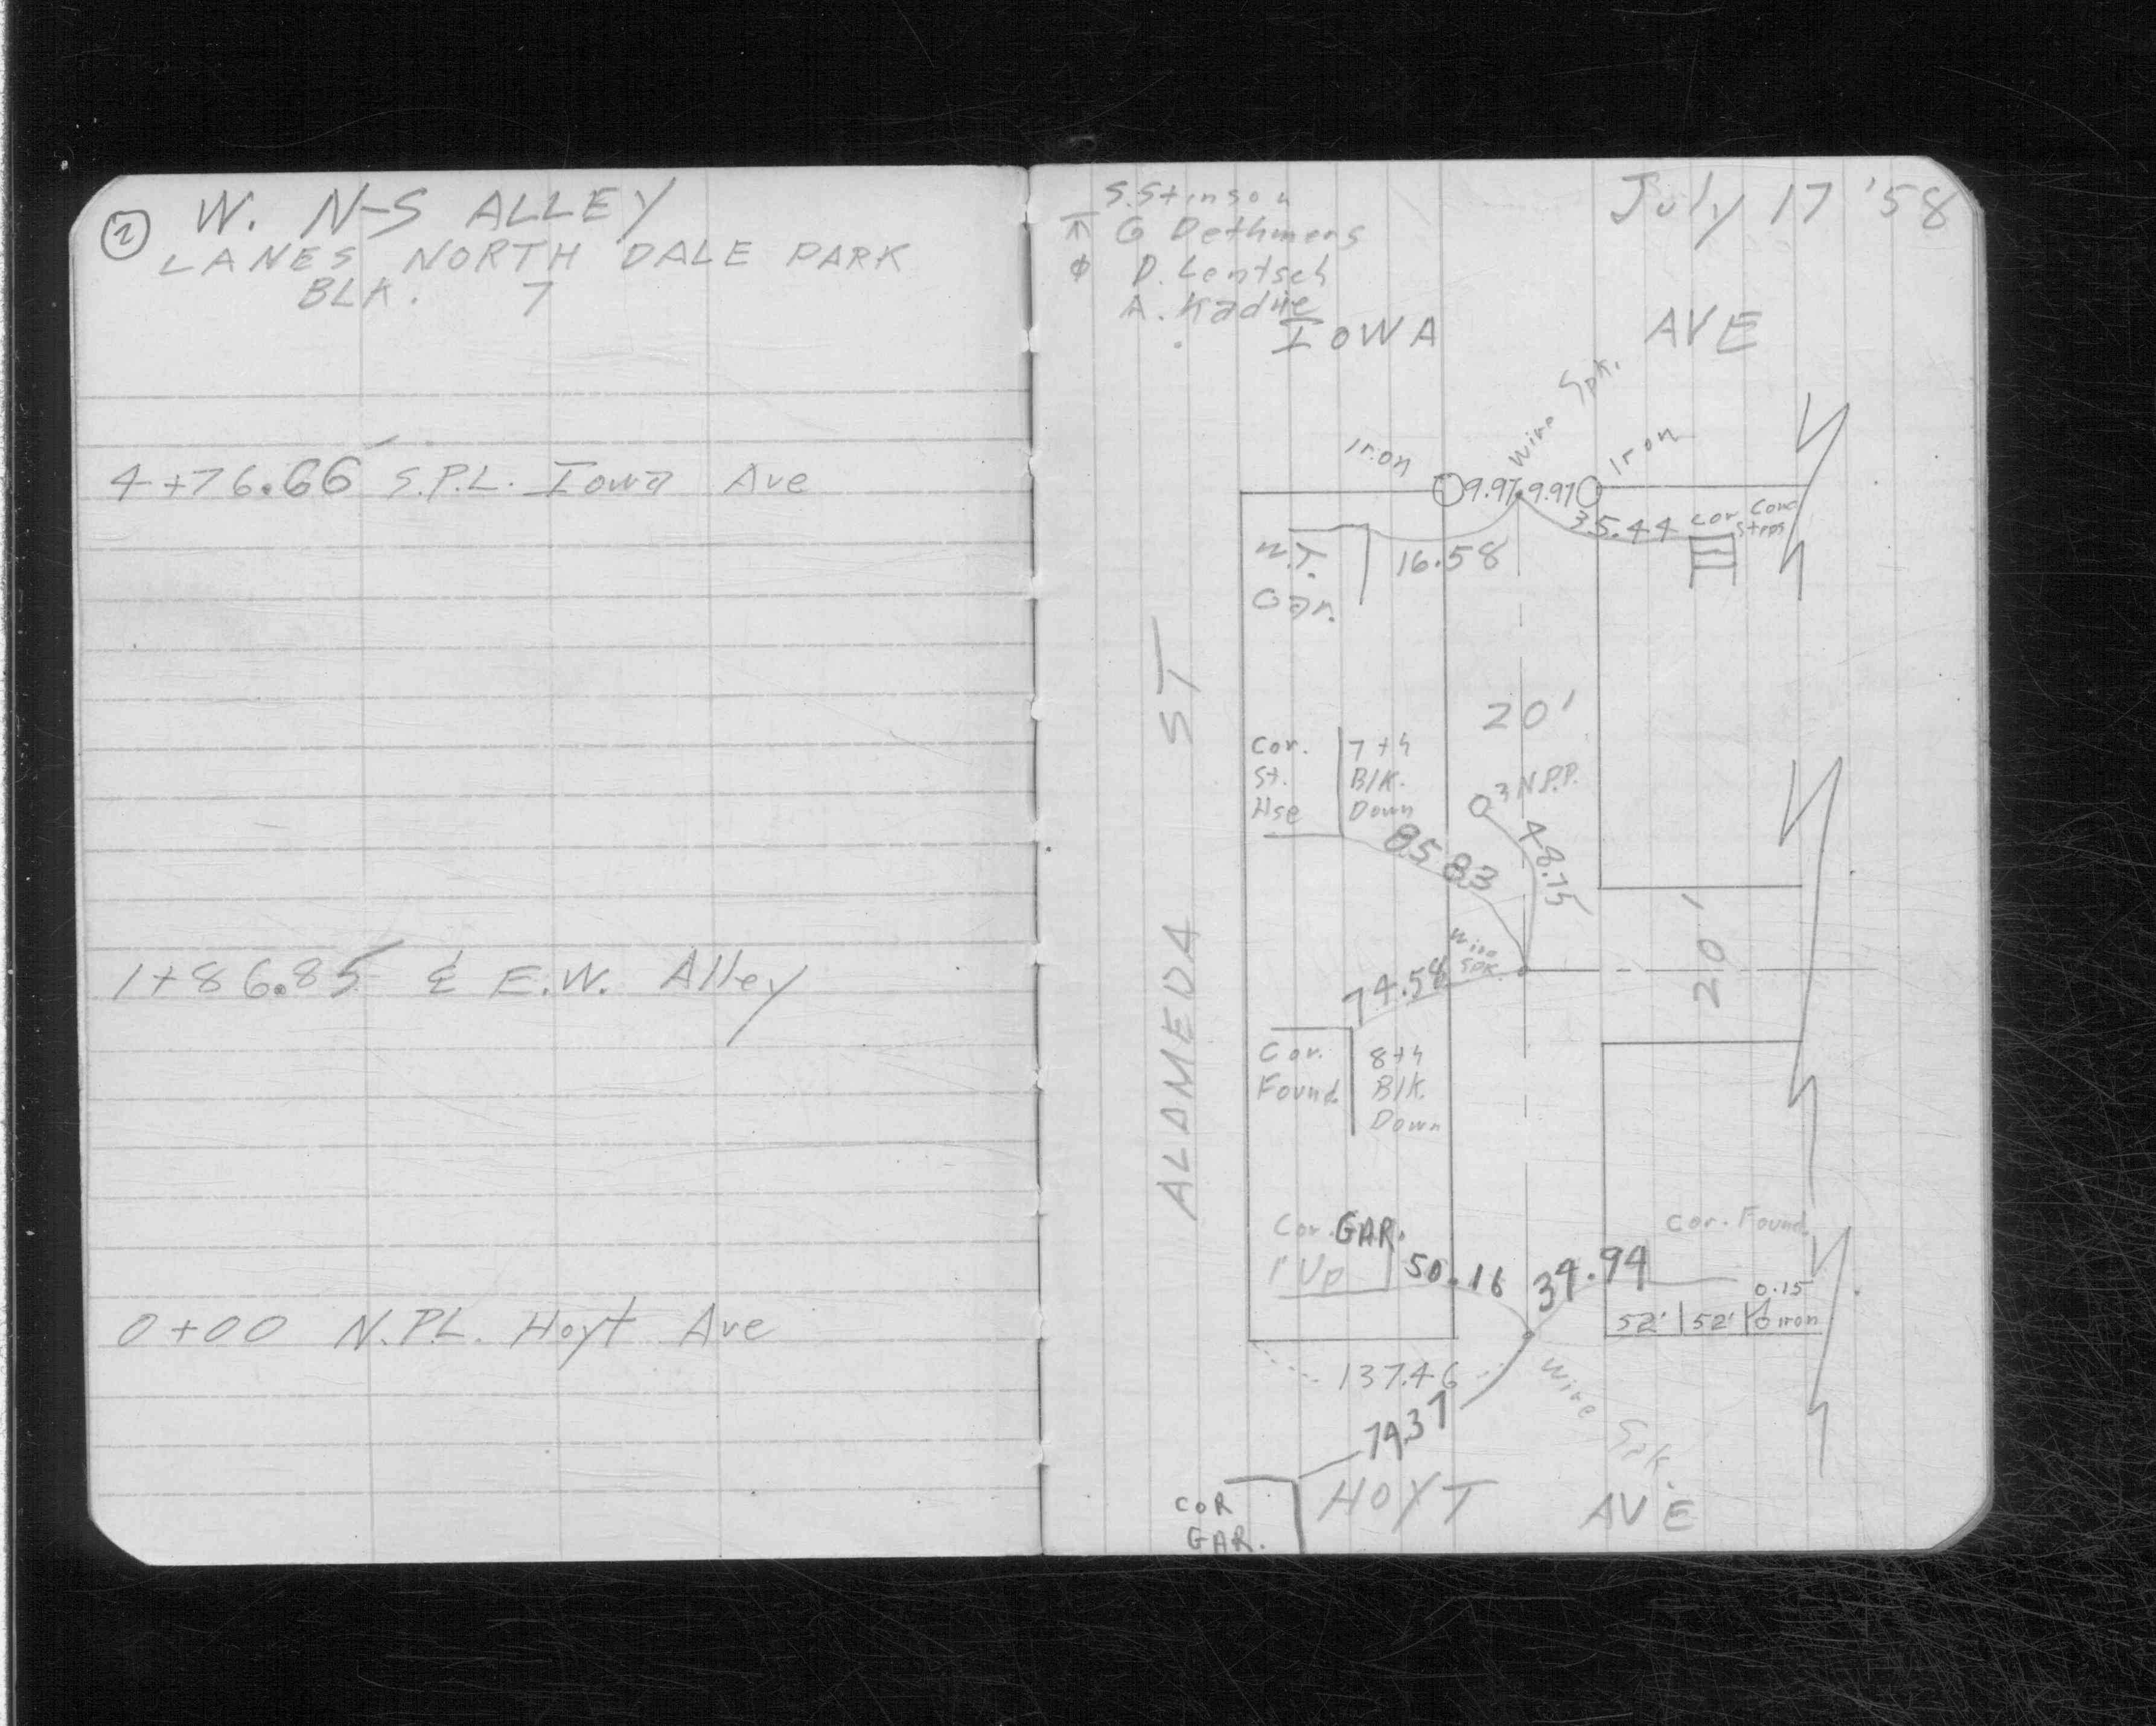 2 W. N-S ALLEY
LANES NORTH DALE PARK
BLK. 7
4+76.66 S.P.L. Iowa Ave
1+86.85 ℄ E.W. Alley
0+00 N.P.L. Hoyt Ave
S. Stinson
July 17 '58
⊼ G Dethmers
ϕ D. Lentsch
A. Kadrie
IOWA AVE
Wire Spk.
Iron
Iron
9.97 9.97
35.44 Cor Conc
Steps
16.58
N.T.
Gar.
20'
ALAMEDA ST
Cor.
St.
Hse
7th
Blk.
Down
N.P.P.
85.83
48.75
Wire
Spk.
74.58
20'
Cor.
Found.
8th
Blk.
Down
Cor. GAR.
1' Up
50.16
39.94
Cor. Found.
0.15
52' 52' iron
137.46
Wire Spk.
79.37
HOYT AVE
COR
GAR.